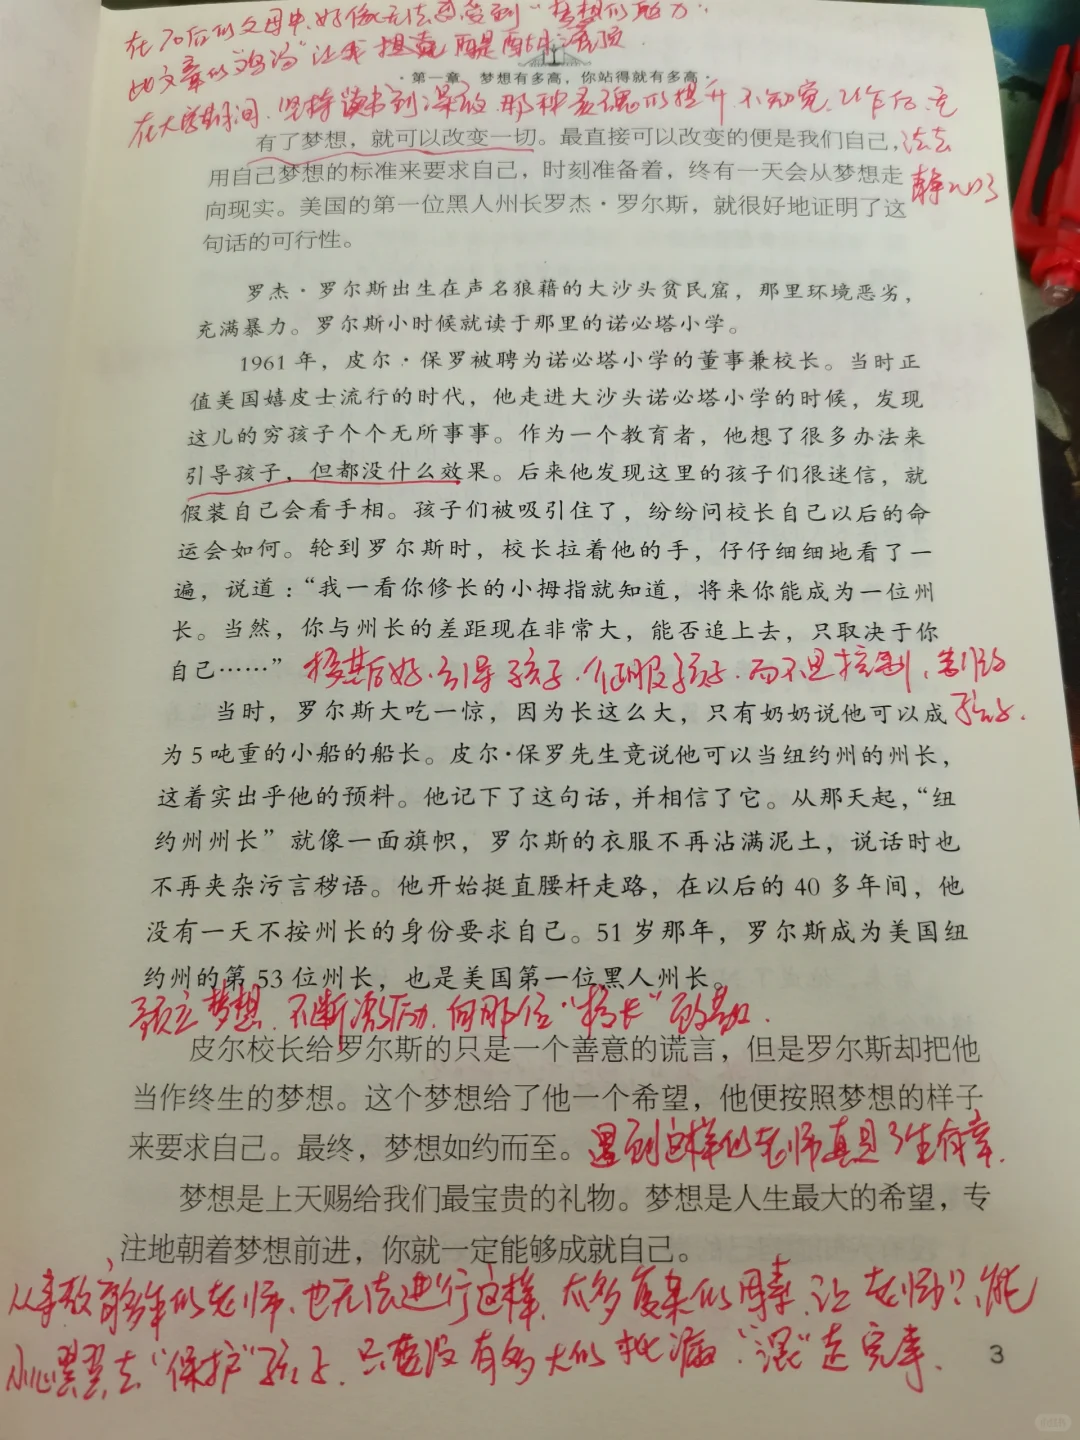 在70后的父母中,好像无法感受到"梦想的魅力"
此文章的"鸡汤"让我
·第一章 梦想有多高,你站得就有多高·
在大学期间,坚持读书到深夜,那种灵魂的提升,不知究,工作后,无
有了梦想,就可以改变一切。最直接可以改变的便是我们自己,
法去
用自己梦想的标准来要求自己,时刻准备着,终有一天会从梦想走
静心了
向现实。美国的第一位黑人州长罗杰·罗尔斯,就很好地证明了这
句话的可行性。
罗杰·罗尔斯出生在声名狼藉的大沙头贫民窟,那里环境恶劣,
充满暴力。罗尔斯小时候就读于那里的诺必塔小学。
1961 年,皮尔·保罗被聘为诺必塔小学的董事兼校长。当时正
值美国嬉皮士流行的时代,他走进大沙头诺必塔小学的时候,发现
这儿的穷孩子个个无所事事。作为一个教育者,他想了很多办法来
引导孩子,但都没什么效果。后来他发现这里的孩子们很迷信,就
假装自己会看手相。孩子们被吸引住了,纷纷问校长自己以后的命
运会如何。轮到罗尔斯时,校长拉着他的手,仔仔细细地看了一
遍,说道:“我一看你修长的小拇指就知道,将来你能成为一位州
长。当然,你与州长的差距现在非常大,能否追上去,只取决于你
自己……”
投其后好,引导孩子,征服孩子,而不是控制,
孩子.
当时,罗尔斯大吃一惊,因为长这么大,只有奶奶说他可以成
为 5 吨重的小船的船长。皮尔·保罗先生竟说他可以当纽约州的州长,
这着实出乎他的预料。他记下了这句话,并相信了它。从那天起,“纽
约州州长”就像一面旗帜,罗尔斯的衣服不再沾满泥土,说话时也
不再夹杂污言秽语。他开始挺直腰杆走路,在以后的 40 多年间,他
没有一天不按州长的身份要求自己。51 岁那年,罗尔斯成为美国纽
约州的第 53 位州长,也是美国第一位黑人州长。
树立梦想,不断激励,向那位"校长"致敬.
皮尔校长给罗尔斯的只是一个善意的谎言,但是罗尔斯却把他
当作终生的梦想。这个梦想给了他一个希望,他便按照梦想的样子
来要求自己。最终,梦想如约而至。
遇到这样的老师真是三生有幸.
梦想是上天赐给我们最宝贵的礼物。梦想是人生最大的希望,专
注地朝着梦想前进,你就一定能够成就自己。
从事教育多年的老师,也无法进行这样,太多复杂的因素,让老师只能
小心翼翼去"保护"孩子,只要没有多大的纰漏,"混"走完事.
3